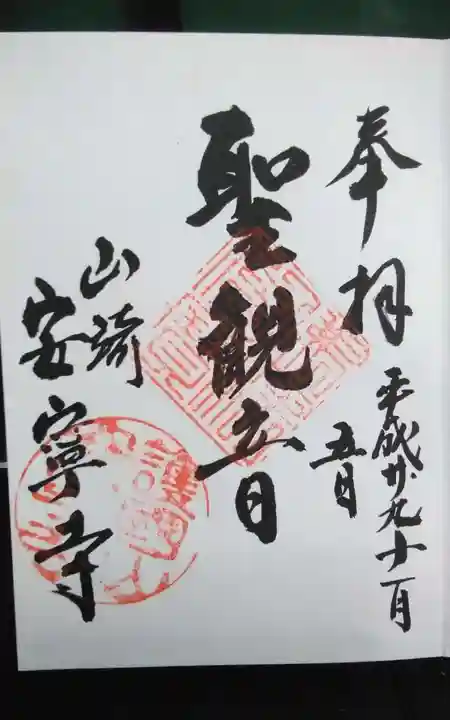 奉拝
平成廿九十一月
五日
聖観音
山崎
安寧寺